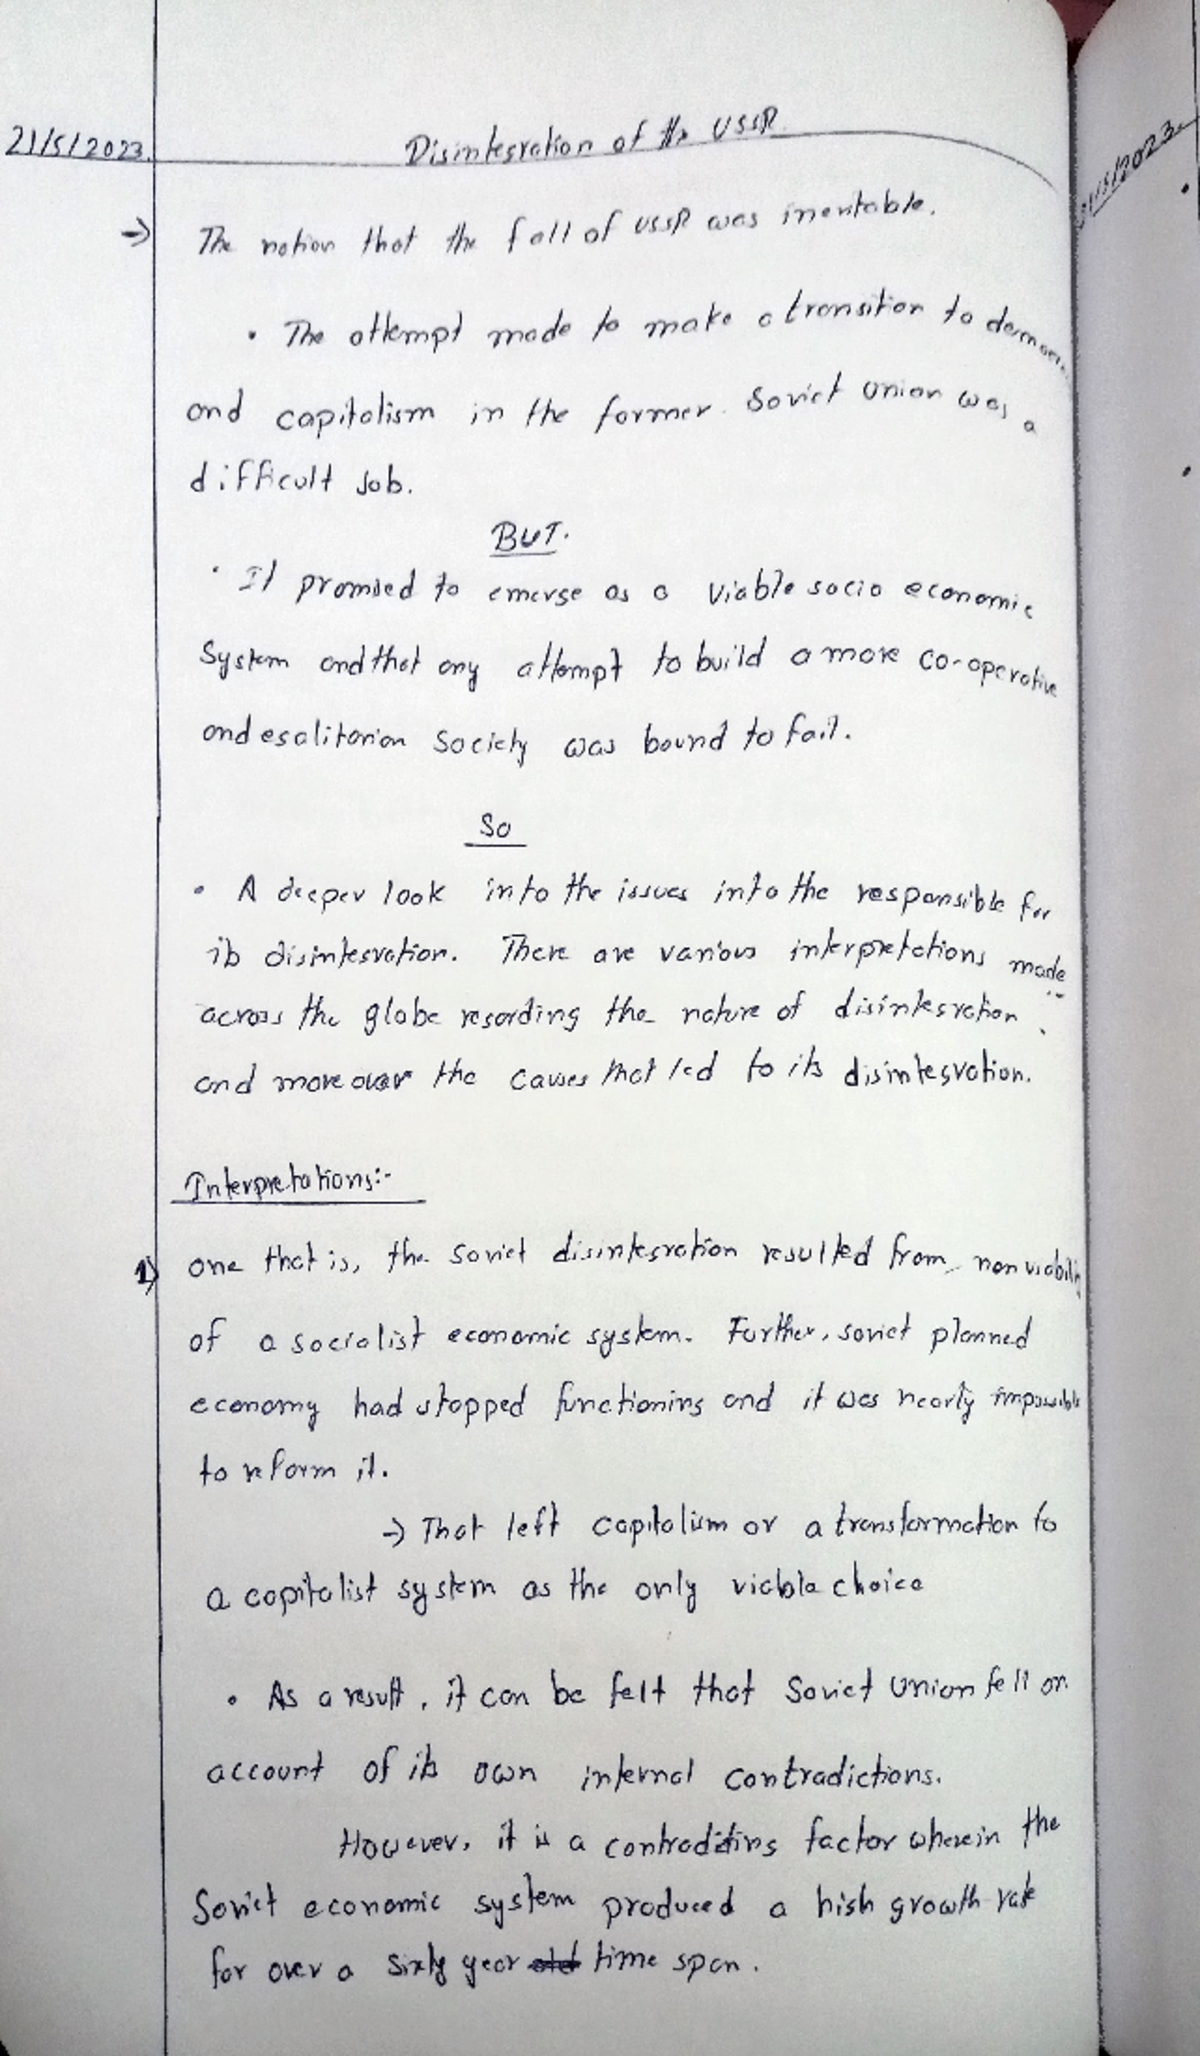 21/5/2023.
Disintegration of the USSR
→ The notion that the fall of USSR was inevitable.
• The attempt made to make a transition to
and capitalism in the former Soviet Union was a
difficult Job.
BUT.
• It promised to emerge as a viable socio economic
System and that any attempt to build a more co-operative
and egalitarian society was bound to fail.
So
• A deeper look into the issues into the responsible for
its disintegration. There are various interpretations made
across the globe regarding the nature of disintegration
and moreover the causes that led to its disintegration.
Interpretations:-
1) one that is, the Soviet disintegration resulted from non viability
of a socialist economic system. Further, soviet planned
economy had stopped functioning and it was nearly impossible
to reform it.
→ That left capitalism or a transformation to
a capitalist system as the only viable choice
• As a result, it can be felt that Soviet Union fell on
account of its own internal contradictions.
However, it is a contradicting factor wherein the
Soviet economic system produced a high growth rate
for over a sixty year time span.
/5/2023.